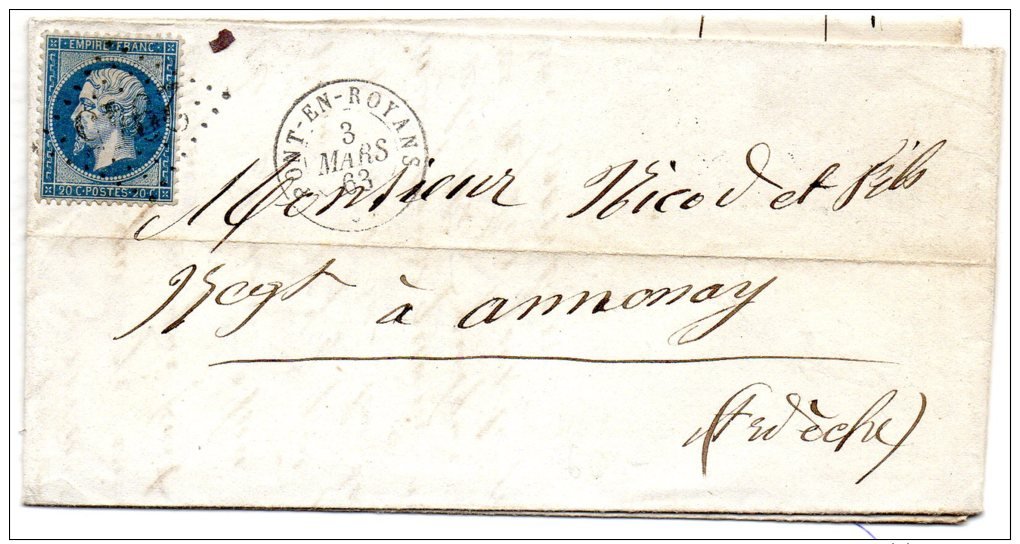 EMPIRE FRANC
20 C·POSTES·20 C
PONT-EN-ROYANS
3
MARS
63
Monsieur Nicod et fils
Negt à annonay
(Ardèche)